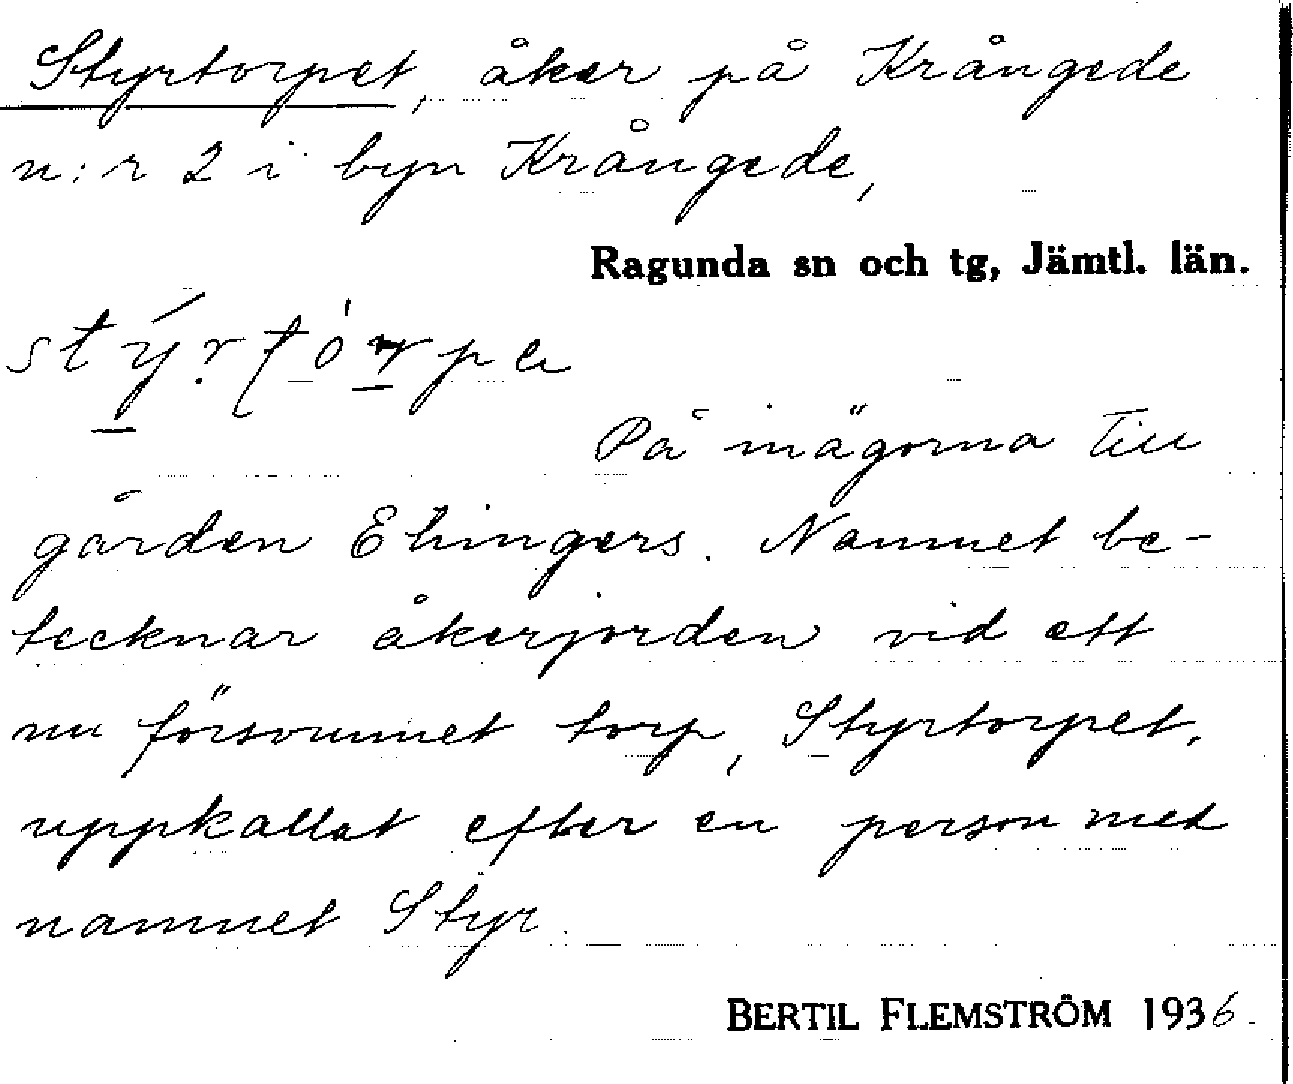 Styrtorpet, åker på Krångede
n:r 2 i byn Krångede,
Ragunda sn och tg, Jämtl. län.
På inägorna till
gården Ehingers. Namnet be-
tecknar åkerjorden vid ett
nu försvunnet torp, Styrtorpet,
uppkallat efter en person med
namnet Styr.
BERTIL FLEMSTRÖM 1936.